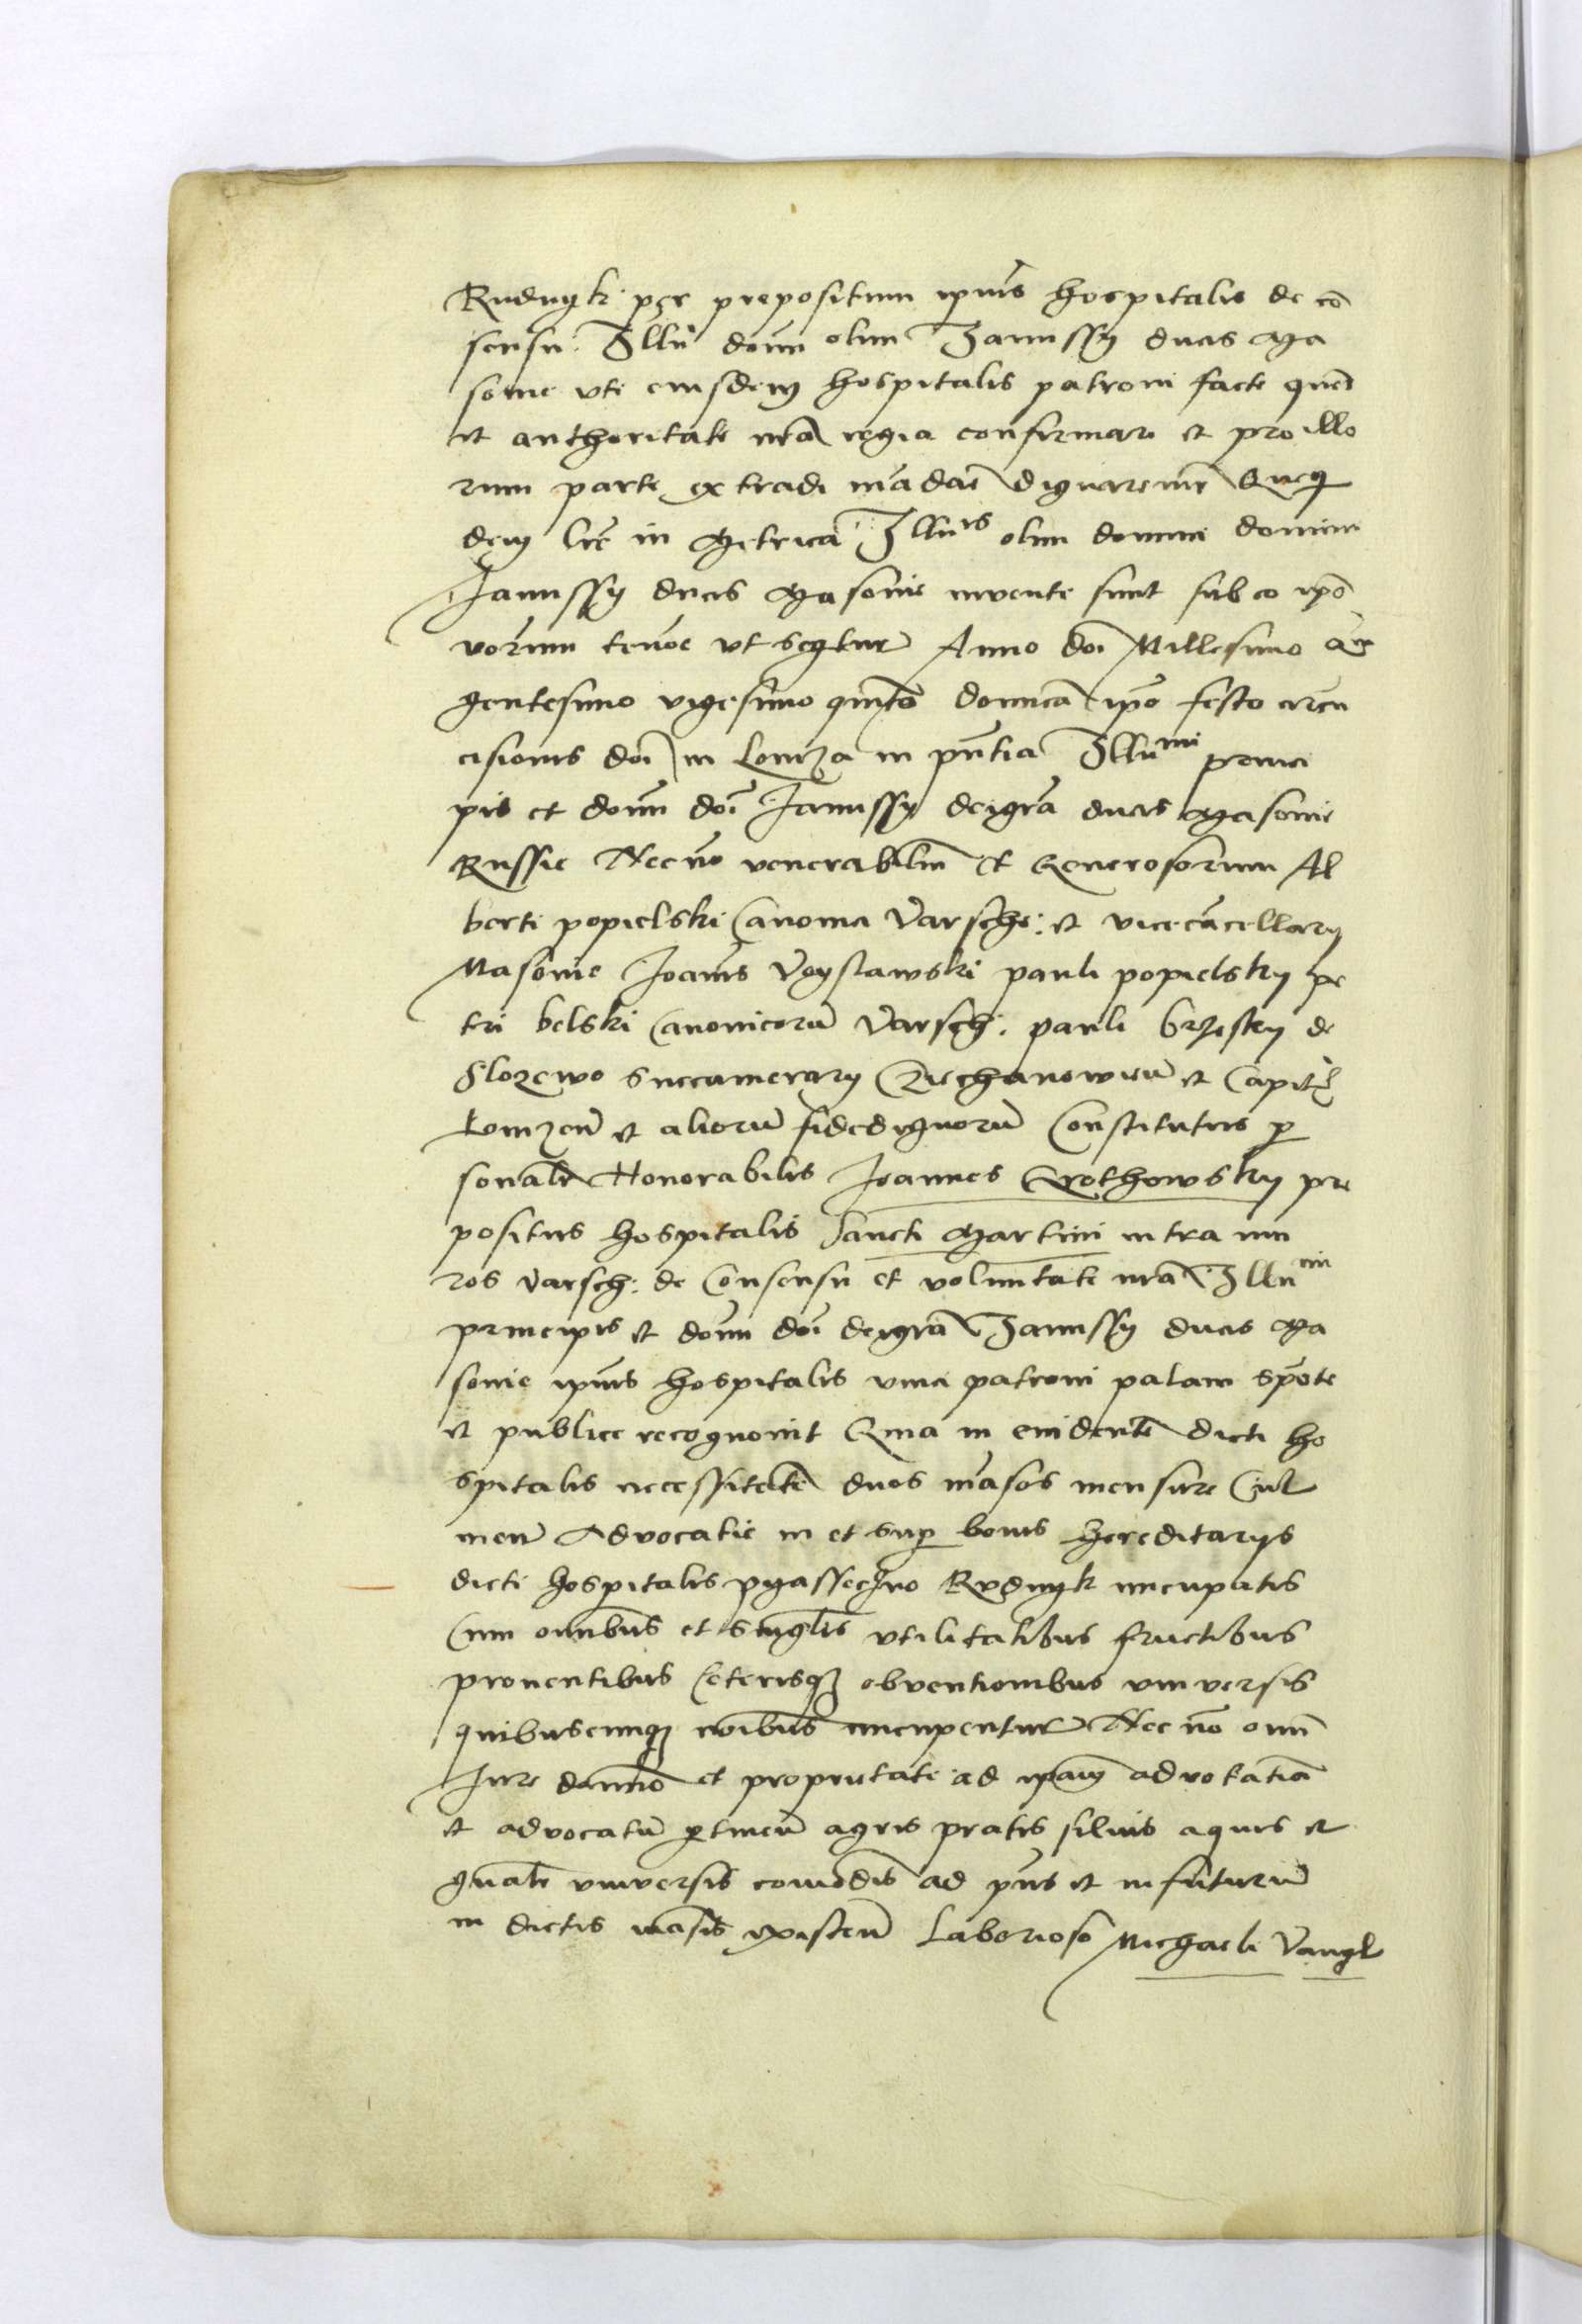 Rudnyk per prepositum ipius hospitalis de cō
sensu Illū domī olim Janussy ducis Ma
sovie uti eiusdem hospitalis patroni facte quas
et authoritate nrā regia confirmare et pro illo
rum parte extradi mādare dignaremur Que qui
dem lrē in Metrica Illūis olim domini domini
Janussy ducis Masovie invente sunt sub eo ipo
vorum tenore ut seqtur Anno doi Millesimo
gentesimo vigesimo quīto domica ipo festo circu
cisionis doi in Lomza in pūtia Illūmi princi
pis et domī doi Janussy dei gra ducis Masovie
Russie Nec nō venerabiliū et Generosorum Al
berti popielski Canonici Varsche: et vicecācellary
Masovie Joānis Voyslawski pauli popielsky pe
tri belski Canonicorū Varsch: pauli brzesky de
Slozewo Succamerary Ciechanowieū et Capit
Lomzeū et aliorū fidedignorū Constitutus per
sonalr Honorabilis Joannes Grothowsky pre
positus hospitalis Sancti Martini intra mu
ros Varsch: de Consensu et voluntate nrā Illūmi
principis et domī doi dei gra Janussy ducis Ma
sovie ipius hospitalis unici patroni palam spōte
et publice recognovit Quia in evidentē dicti ho
spitalis necessitatē duos māsos mensure Cul
meū Advocatie in et sup bonis hereditarys
dicti hospitalis pyassechno Rudnyk nūcupatis
Cum omnibus et singlis utilitatibus fructibus
proventibus Ceterisq obventionibus universis
quibuscunq noibus nuncupentur Nec nō omī
Jure dominio et proprietate ad ipam advocatiā
et advocatū ptineū agris pratis silvis aquis et
gnalr universis comodis ad pns et in futurū
in dictis māsis existeū Laborioso Michaeli Vangl